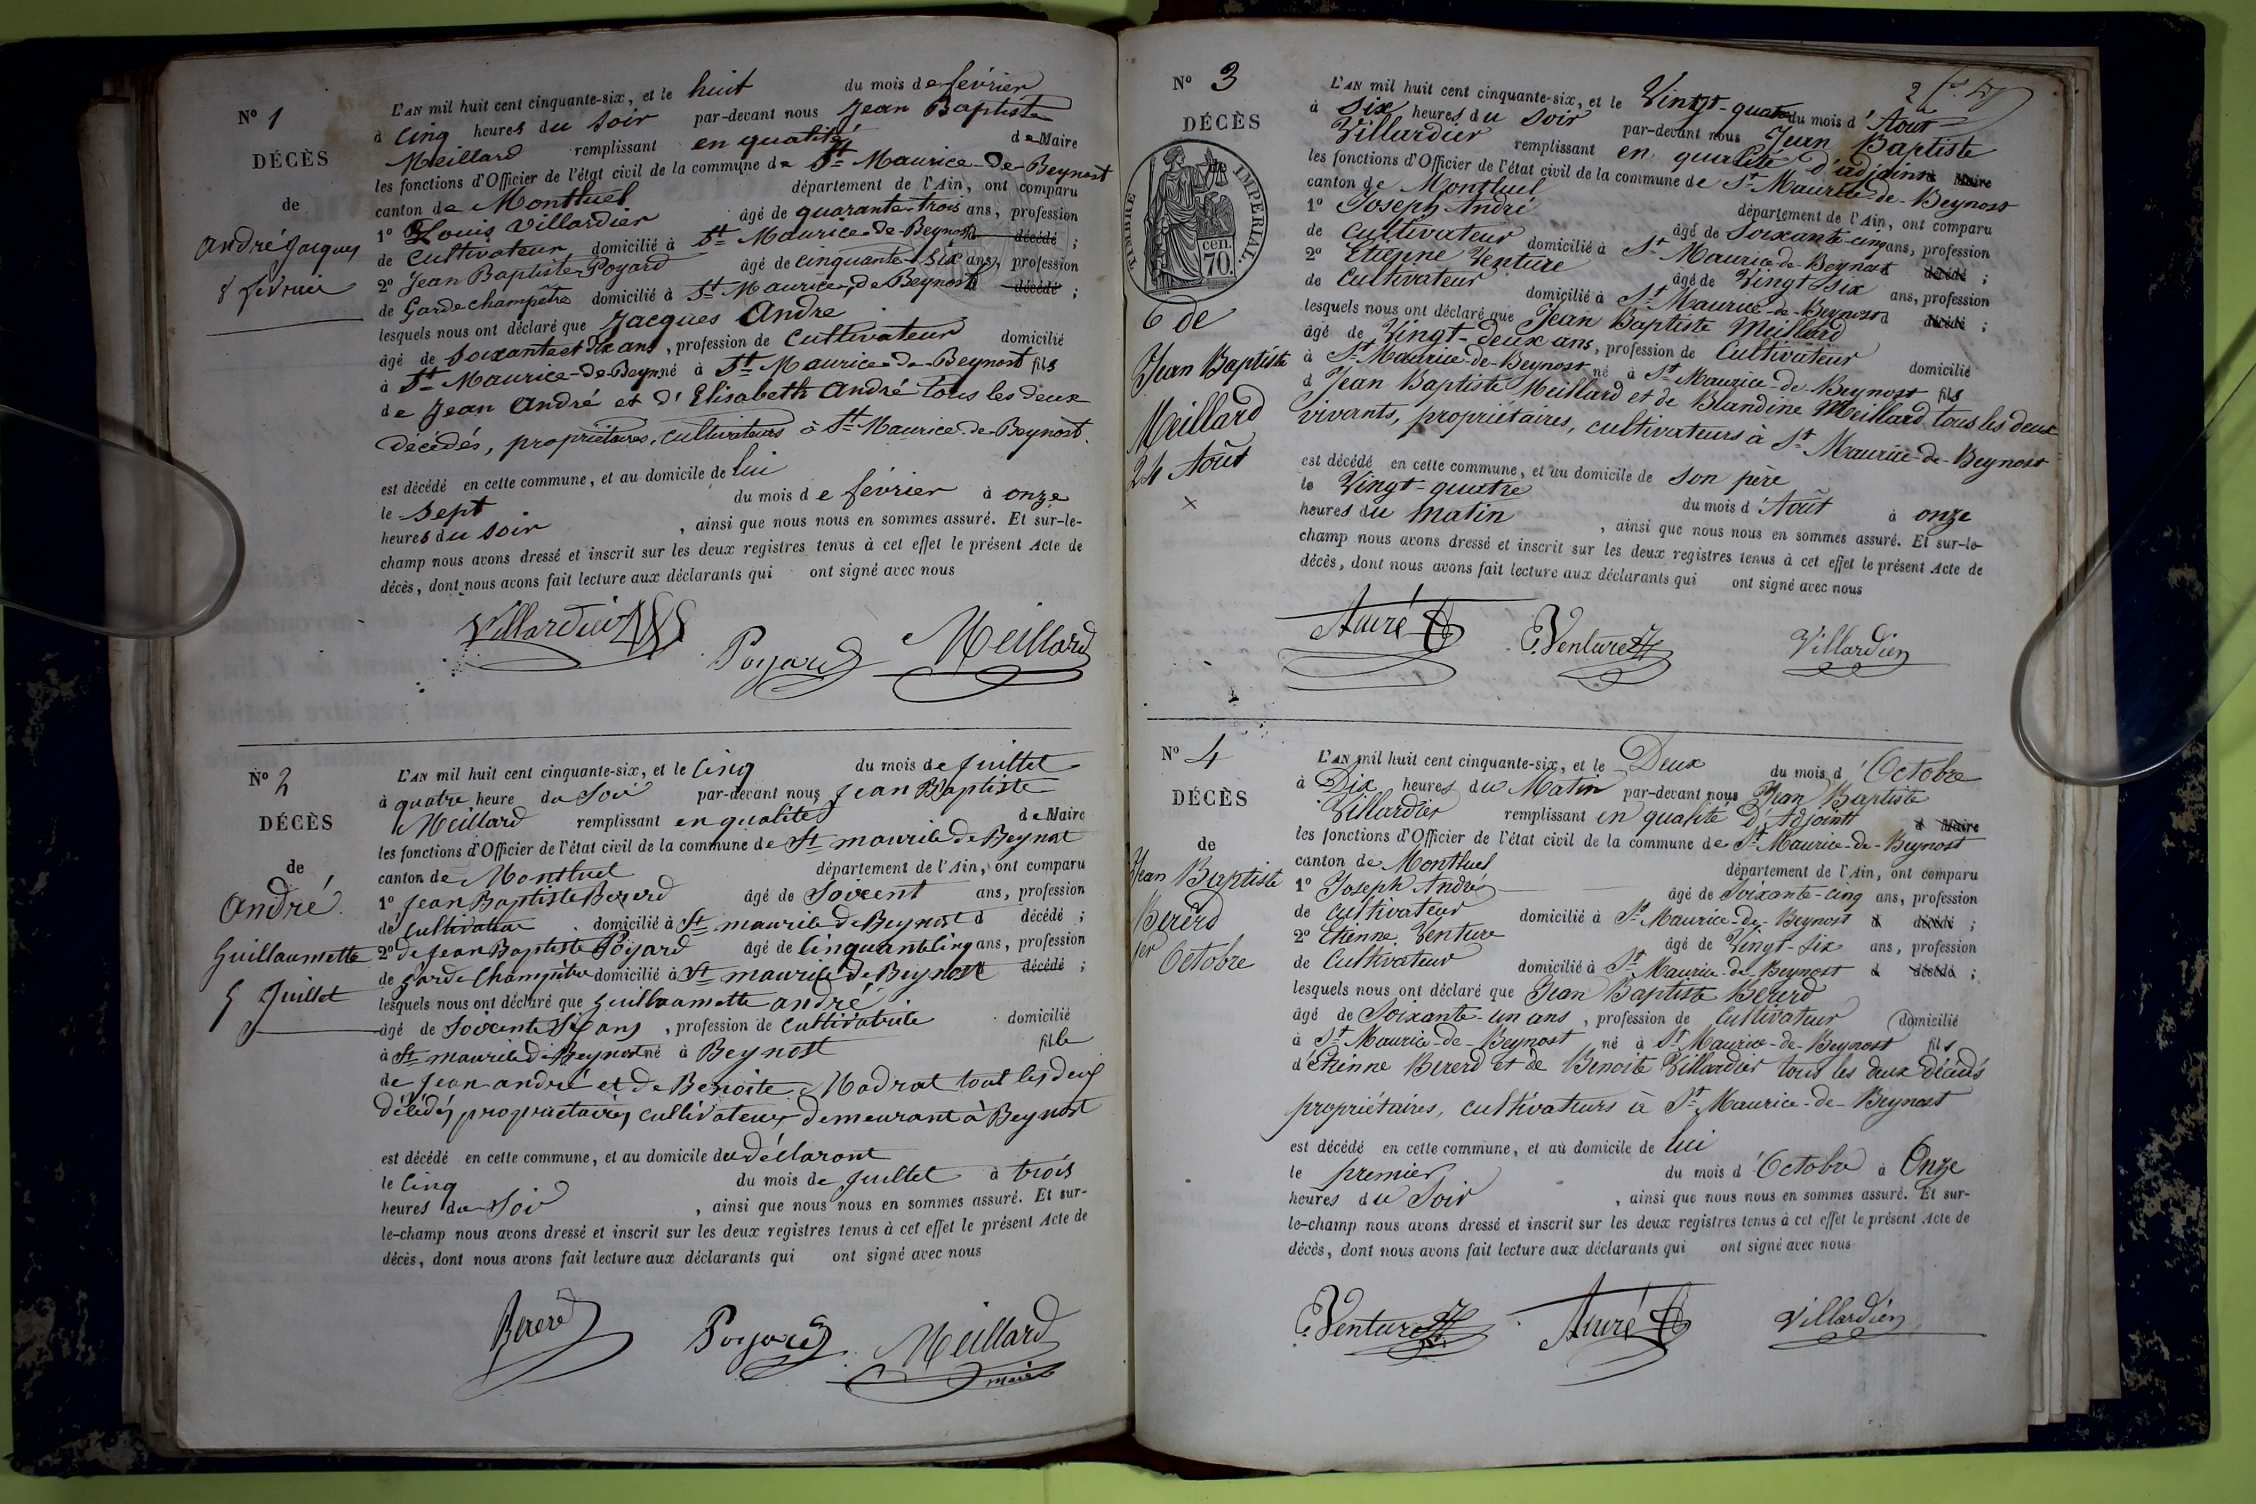 N° 1
DÉCÈS
de
André Jacques
8 février
L'AN mil huit cent cinquante-six, et le huit du mois de février
à cinq heures du soir par-devant nous Jean Baptiste
Meillard remplissant en qualité de Maire
les fonctions d'Officier de l'état civil de la commune de St Maurice-de-Beynost
canton de Montluel département de l'Ain, ont comparu
1° Louis Villardier âgé de quarante-trois ans, profession
de cultivateur domicilié à St Maurice-de-Beynost décédé ;
2° Jean Baptiste Poyard âgé de cinquante-six ans, profession
de Garde champêtre domicilié à St Maurice, de Beynost décédé ;
lesquels nous ont déclaré que Jacques André
âgé de soixante et dix ans, profession de cultivateur domicilié
à St Maurice-de-Beyn né à St Maurice-de-Beynost fils
de Jean André et d'Elisabeth André tous les deux
décédés, propriétaires, cultivateurs à St Maurice-de-Beynost.
est décédé en cette commune, et au domicile de lui
le sept du mois de février à onze
heures du soir , ainsi que nous nous en sommes assuré. Et sur-le-
champ nous avons dressé et inscrit sur les deux registres tenus à cet effet le présent Acte de
décès, dont nous avons fait lecture aux déclarants qui ont signé avec nous
Villardier Poyard Meillard
N° 2
DÉCÈS
de
André
Guillaumette
5 Juillet
L'AN mil huit cent cinquante-six, et le cinq du mois de Juillet
à quatre heure du Soir par-devant nous Jean Baptiste
Meillard remplissant en qualité de Maire
les fonctions d'Officier de l'état civil de la commune de St maurice de Beynost
canton de Montluel département de l'Ain, ont comparu
1° Jean Baptiste Bererd âgé de Soixent ans, profession
de Cultivateur domicilié à St maurice de Beynost d décédé ;
2° de Jean Baptiste Poyard âgé de cinquante cinq ans, profession
de garde Champêtre domicilié à St maurice de Beynost décédé ;
lesquels nous ont déclaré que guillaumette andré
âgé de Soixente Six ans, profession de Cultivatrice domicilié
à St maurice de Beynost né à Beynost fille
de Jean andré et de Benoite Nadrat tout les deux
décédés, propriétaires, cultivateur demeurant à Beynost
est décédé en cette commune, et au domicile du déclarant
le cinq du mois de Juillet à trois
heures du Soir , ainsi que nous nous en sommes assuré. Et sur-
le-champ nous avons dressé et inscrit sur les deux registres tenus à cet effet le présent Acte de
décès, dont nous avons fait lecture aux déclarants qui ont signé avec nous
Bererd Poyard Meillard
maire
2
N° 3
DÉCÈS
TIMBRE IMPERIAL
70 cen.
de
Jean Baptiste
Meillard
24 Août
L'AN mil huit cent cinquante-six, et le Vingt-quatre du mois d'Août
à six heures du soir par-devant nous Jean Baptiste
Villardier remplissant en qualité d'adjoint d Maire
les fonctions d'Officier de l'état civil de la commune de St Maurice-de-Beynost
canton de Montluel département de l'Ain, ont comparu
1° Joseph André âgé de Soixante-cinq ans, profession
de cultivateur domicilié à St Maurice-de-Beynost décédé ;
2° Etienne Venture âgé de Vingt-six ans, profession
de cultivateur domicilié à St Maurice-de-Beynost d décédé ;
lesquels nous ont déclaré que Jean Baptiste Meillard
âgé de Vingt-deux ans, profession de Cultivateur domicilié
à St Maurice-de-Beynost né à St Maurice-de-Beynost fils
d Jean Baptiste Meillard et de Blandine Meillard tous les deux
vivants, propriétaires, cultivateurs à St Maurice-de-Beynost
est décédé en cette commune, et au domicile de son père
le Vingt-quatre du mois d'Août à onze
heures du matin , ainsi que nous nous en sommes assuré. Et sur-le-
champ nous avons dressé et inscrit sur les deux registres tenus à cet effet le présent Acte de
décès, dont nous avons fait lecture aux déclarants qui ont signé avec nous
André E. Venture Villardier
N° 4
DÉCÈS
de
Jean Baptiste
Bererd
1er
Octobre
L'AN mil huit cent cinquante-six, et le Deux du mois d'Octobre
à Dix heures du Matin par-devant nous Jean Baptiste
Villardier remplissant en qualité D'Adjoint d Maire
les fonctions d'Officier de l'état civil de la commune de St Maurice-de-Beynost
canton de Montluel département de l'Ain, ont comparu
1° Joseph André âgé de Soixante-cinq ans, profession
de cultivateur domicilié à St Maurice-de-Beynost d décédé ;
2° Etienne Venture âgé de Vingt-six ans, profession
de Cultivateur domicilié à St Maurice-de-Beynost d décédé ;
lesquels nous ont déclaré que Jean Baptiste Bererd
âgé de Soixante-un ans, profession de cultivateur domicilié
à St Maurice-de-Beynost né à St Maurice-de-Beynost fils
d'Etienne Bererd et de Benoite Villardier tous les deux décédés
propriétaires, cultivateurs à St Maurice-de-Beynost
est décédé en cette commune, et au domicile de lui
le premier du mois d'Octobre à Onze
heures du Soir , ainsi que nous nous en sommes assuré. Et sur-
le-champ nous avons dressé et inscrit sur les deux registres tenus à cet effet le présent Acte de
décès, dont nous avons fait lecture aux déclarants qui ont signé avec nous
E. Venture André Villardier